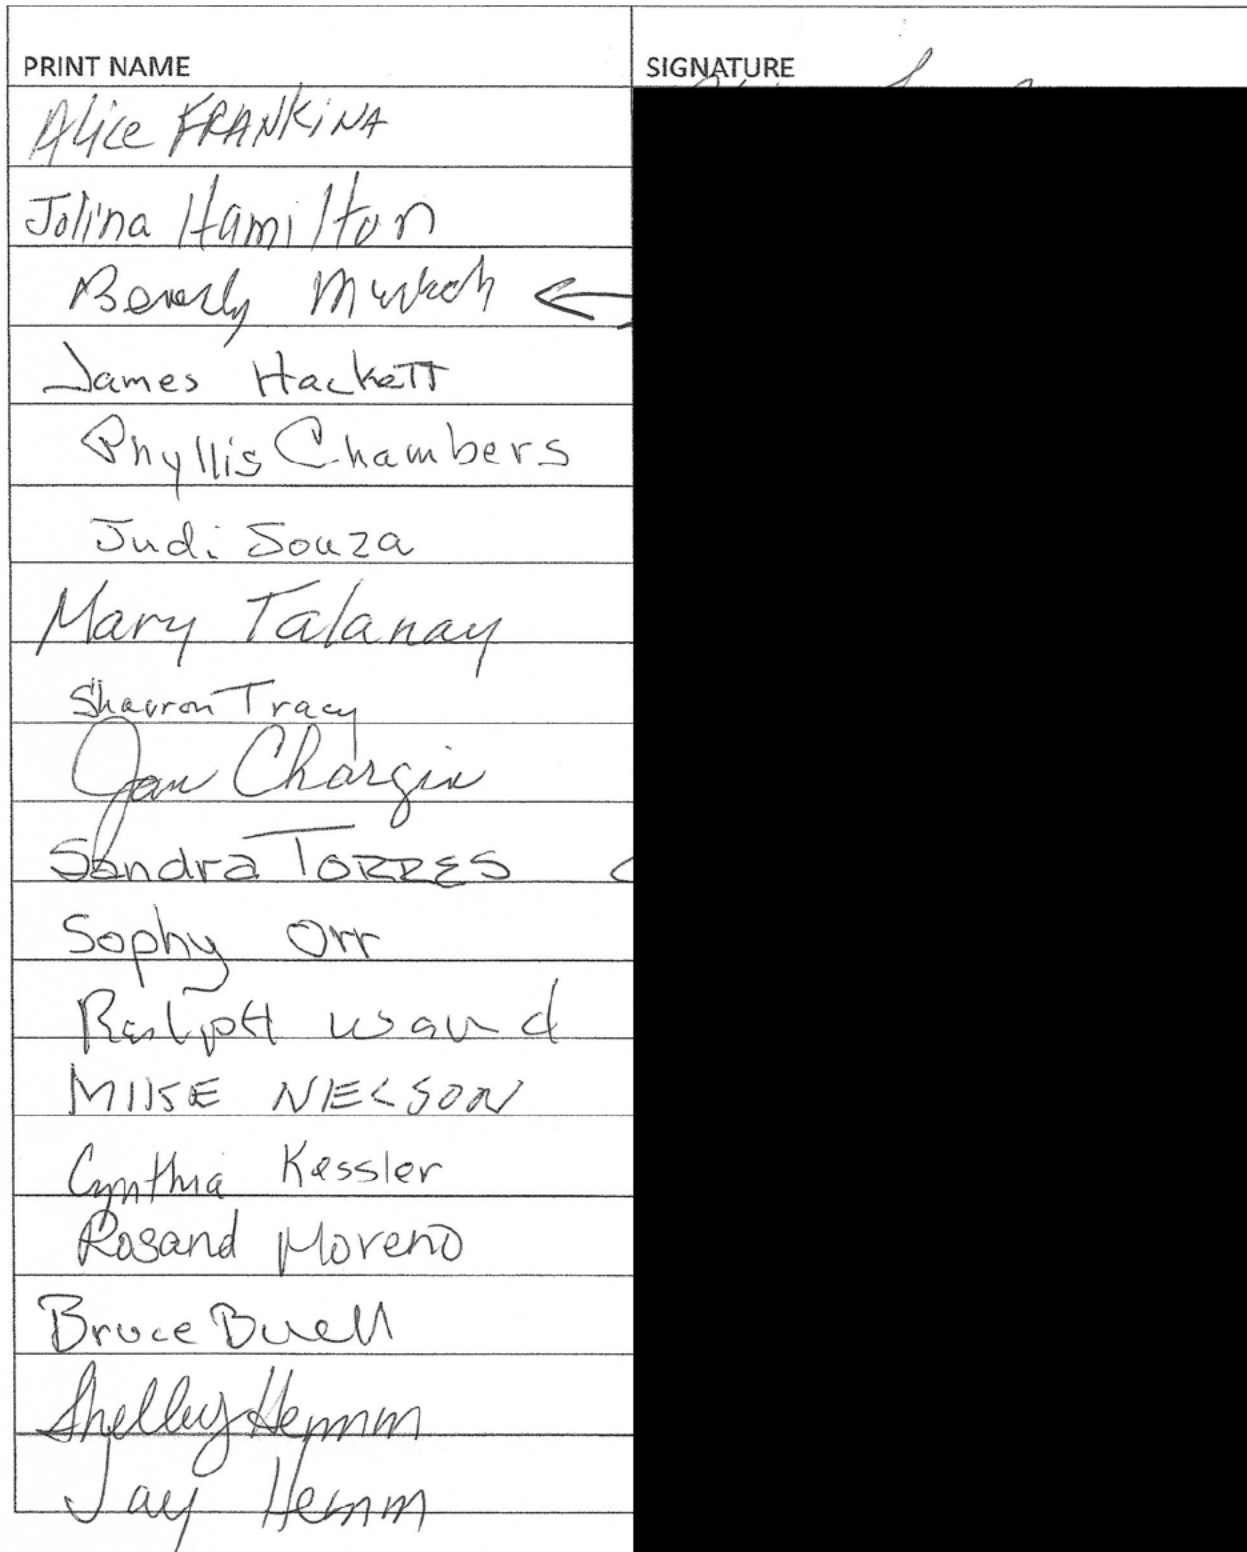 PRINT NAME SIGNATURE
Alice FRANKINA
Jolina Hamilton
Beverly
James Hackett
Phyllis Chambers
Judi Souza
Mary Talanay
Tracy
Jan Chargin
Sandra TORRES
Sophy Orr
RalpH
MIKE NIELSON
Cynthia Kessler
Rosand Moreno
Bruce Buell
Shelley Hemm
Jay Hemm